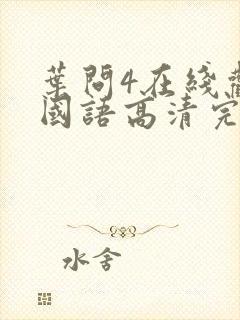 葉問4在綫
國語高清完
水舍